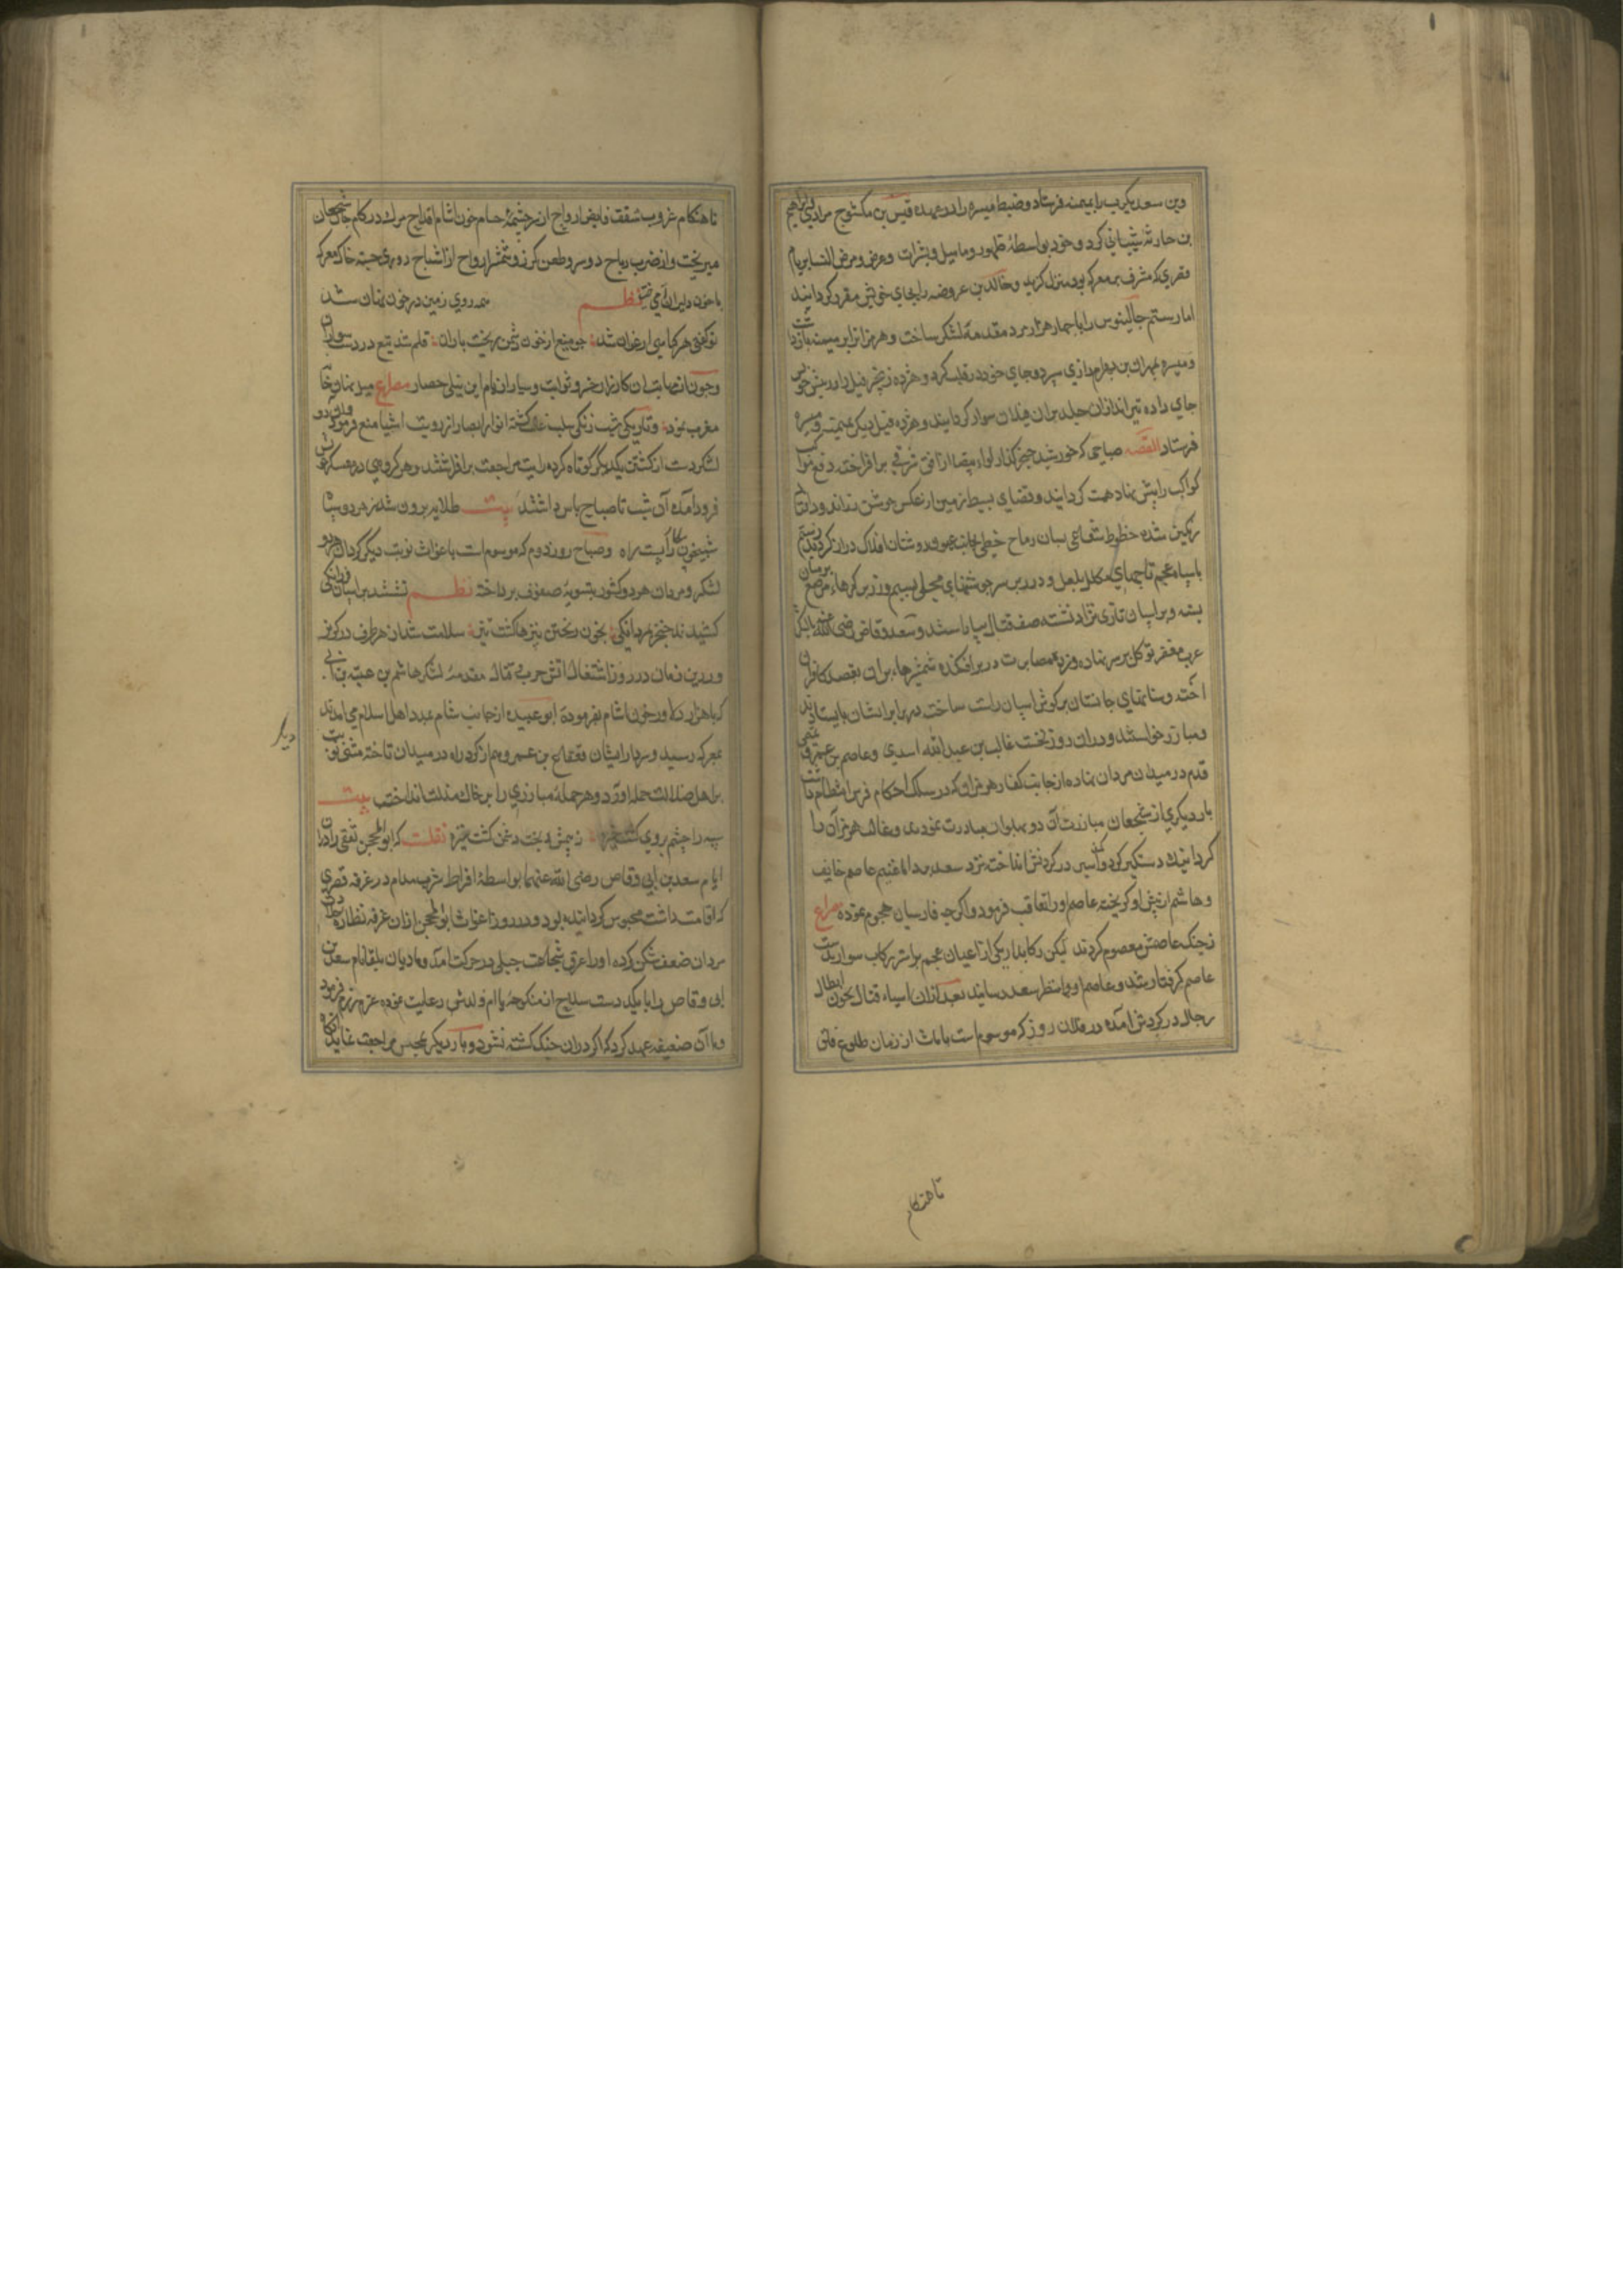 بن سعد یکرب را بمیمنه فرستاد و ضبط میسره را در عهده قیس بن مکشوح مرادی و ابراهیم
بن حارثه شیبانی کرد و خود بواسطهٔ ظهور و مامیل و بثرات و مرض عرق النسا بربام
قصری که مشرف بر معرکه بود منزل کزید و خالد بن عروضه را بجای خویش مقرر کردانید
اما رستم جالینوس را با چهار هزار مرد مقدمهٔ لشکر ساخت و هرمزان را بر میمنه بازداشت
و میسره بمهران بن بهرام رازی سپرد و جای خود در قلب کرد و هژده زنجیر فیل را در پیش خویش
جای داده تیراندازان جلد بران فیلان سوار کردانید و هژده فیل دیکر بمیمنه و میسره
فرستاد القصه صباحی که خورشید خنجر کذار لواء بیضا از افق شرقی برافراخته دفع مواکب
کواکب را پیش نهاد همت کردانید و فضای بسیط زمین از عکس جوشن
رنکین شده خطوط شعاعی بسان رماح خطی بجانب روشنان افلاک دراز کردید رستم
با سپاه عجم تاجهای مکلل بلعل و در بر سر جوشنهای محلی بسیم و زر در بر کمرهاء مرصع برمیان
بسته و بر اسپان تازی نژاد نشسته صف قتال بیاراستند و سعد وقاص رضی الله عنه با لشکر
عرب مغفر توکل بر سر نهاده و زره مصابرت در بر افکنده شمشیرهاء بران بقصد کافران
آخته و سنانهای جانستان بر کوش اسپان راست ساخته در برابر ایشان بایستادند
و مبارز خواستند و دران روز نخست غالب بن عبدالله اسدی و عاصم بن عمرو تمیمی
قدم در میدان مردان نهاده از جانب کفار هرمزان که در سلک حکام فرس انتظام داشت
با دیکری از شجعان مبارزت آن دو پهلوان مبادرت نمودی و غالب هرمزان را
کردانیده دستکیر کرد و در کردنش انداخته نزد سعد برد اما غنیم عاصم خایف
و هاشم از پیش او کریخته عاصم او را تعاقب فرمود و اکرچه فارسیان هجوم نموده مصراع
ز چنک عاصمش معصوم کردند لیکن رکابدار یکی از اعیان عجم بر استر رکاب سوار بدست
عاصم کرفتار شد و عاصم او را بنظر سعد رسانید بعد ازان آسیاء قتال بخون ابطال
رجال در کردش آمده دران روز که موسوم است بارماث از زمان طلوع
تا هنکام
تا هنکام غروب شفق فایض ارواح از سرچشمهٔ حسام خون اشام اقداح مرک در کام جان شجعان
میریخت و از ضرب رماح دو سر و طعن کرز و شمشیر ارواح از اشباح دوری جسته خاک معرکه
با خون دلیران نظم همه روی زمین در خون نهان شد
تو کفتی هرکیاهی ارغوان شد چو میغ از خون دشمن ریخت باران قلم شد تیغ در دست سواران
و چون از نهایت آن کارزار خسرو ثوابت و سیار از بام این نیلی حصار مصراع میل نهانخانهٔ
مغرب نمود و تاریکی شب زنکی سلب کشته انوار ابصار را از رویت اشیا منع فرمود هر دو
لشکر دست از کشتن یکدیکر کوتاه کرده رایت مراجعت برافراشتند و هر کروهی در معسکر خویش
فرود آمده آن شب تا صباح پاس داشتند بیت طلایه برون شد ز هر دو سپاه
شبیخون را ببست راه و صباح روز دوم که موسوم است باغواث نوبت دیکر کردان هر دو
لشکر و مردان هر دو کشور بتسویهٔ صفوف پرداخته نظم نشستند بر اسپان
کشیدند خنجر بمردانکی بخون ریختن نیزها کشت تیز سلامت شد از هر طرف در کریز
و درین زمان در روز اشتعال آتش حرب و قتال مقدمهٔ لشکر هاشم بن عتبه
که با هزار دلاور خون آشام بفرمودهٔ ابو عبیده از جانب شام بمدد اهل اسلام می آمدند
بمعرکه رسید و سردار ایشان قعقاع بن عمرو هم از کرد راه در میدان تاخته متنی نوبت
بر اهل ضلالت حمله آورد و هر حمله مبارزی را بر خاک مذلت انداخت بیت
سپه را چشم بروی کشت خیره ز بیمش بخت دشمن کشت تیره نقلست که ابو المحجن ثقفی را دران
ایام سعد بن ابی وقاص رضی الله عنهما بواسطهٔ افراط شرب مدام در غرفهٔ قصری
که اقامت داشت محبوس کردانیده بود و در روز اغواث ابو المحجن ازان غرفه نظاره
مردان صف شکن کرده او را عرق شجاعت جبلی در حرکت آمد و مادیان بلقا نام سعد بن
ابی وقاص را با یکدست سلاح از منکوحه یا ام ولدش رعایت نموده عزم رزم فرمود
و با آن ضعیفه عهد کرد که اکر دران جنک کشته نشود و بار دیکر بمحبس مراجعت نماید
دیار